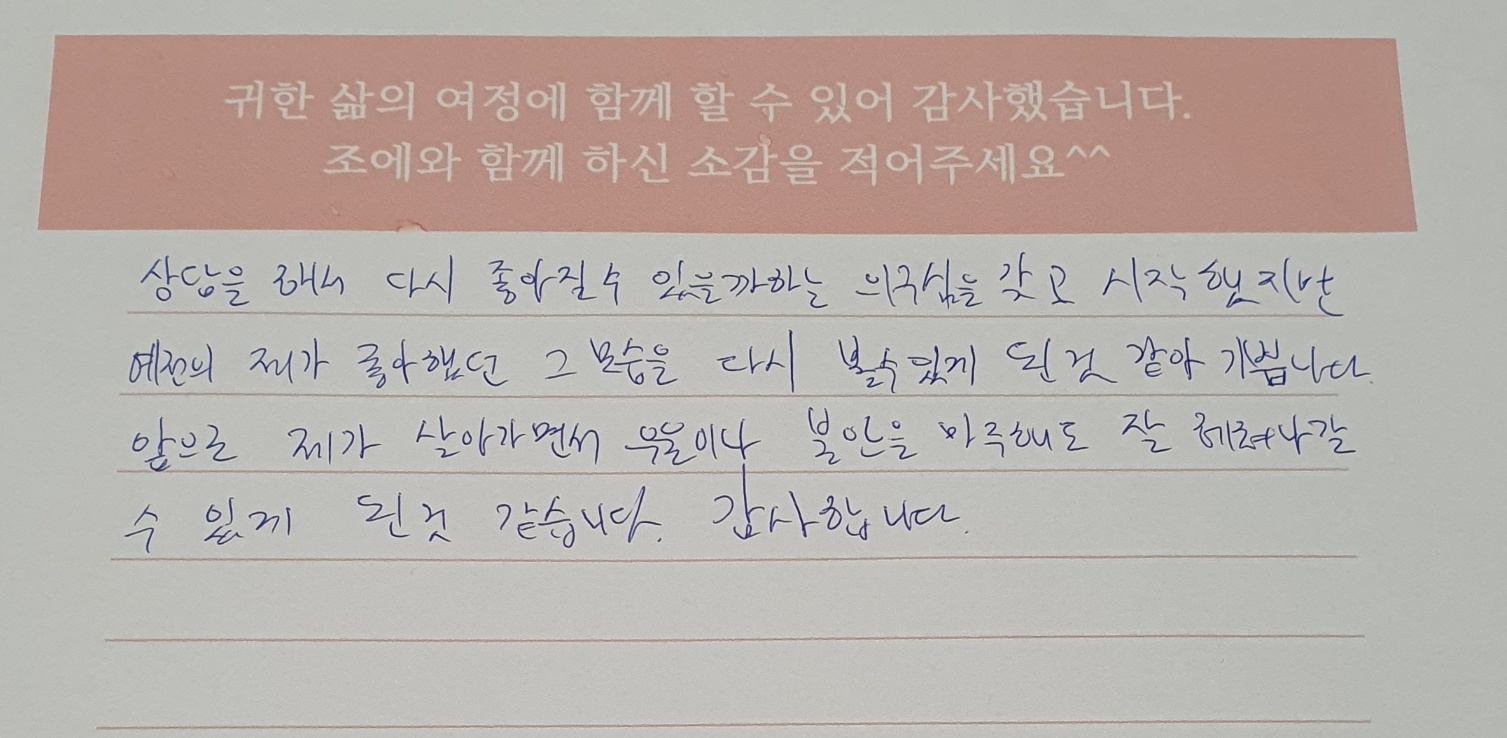 귀한 삶의 여정에 함께 할 수 있어 감사했습니다.
조에와 함께 하신 소감을 적어주세요^^
상담을 해서 다시 좋아질수 있을까하는 의구심을 갖고 시작했지만
예전의 제가 좋아했던 그 모습을 다시 볼수있게 된것 같아 기쁩니다.
앞으로 제가 살아가면서 우울이나 불안을 마주해도 잘 헤쳐나갈
수 있게 된것 같습니다. 감사합니다.